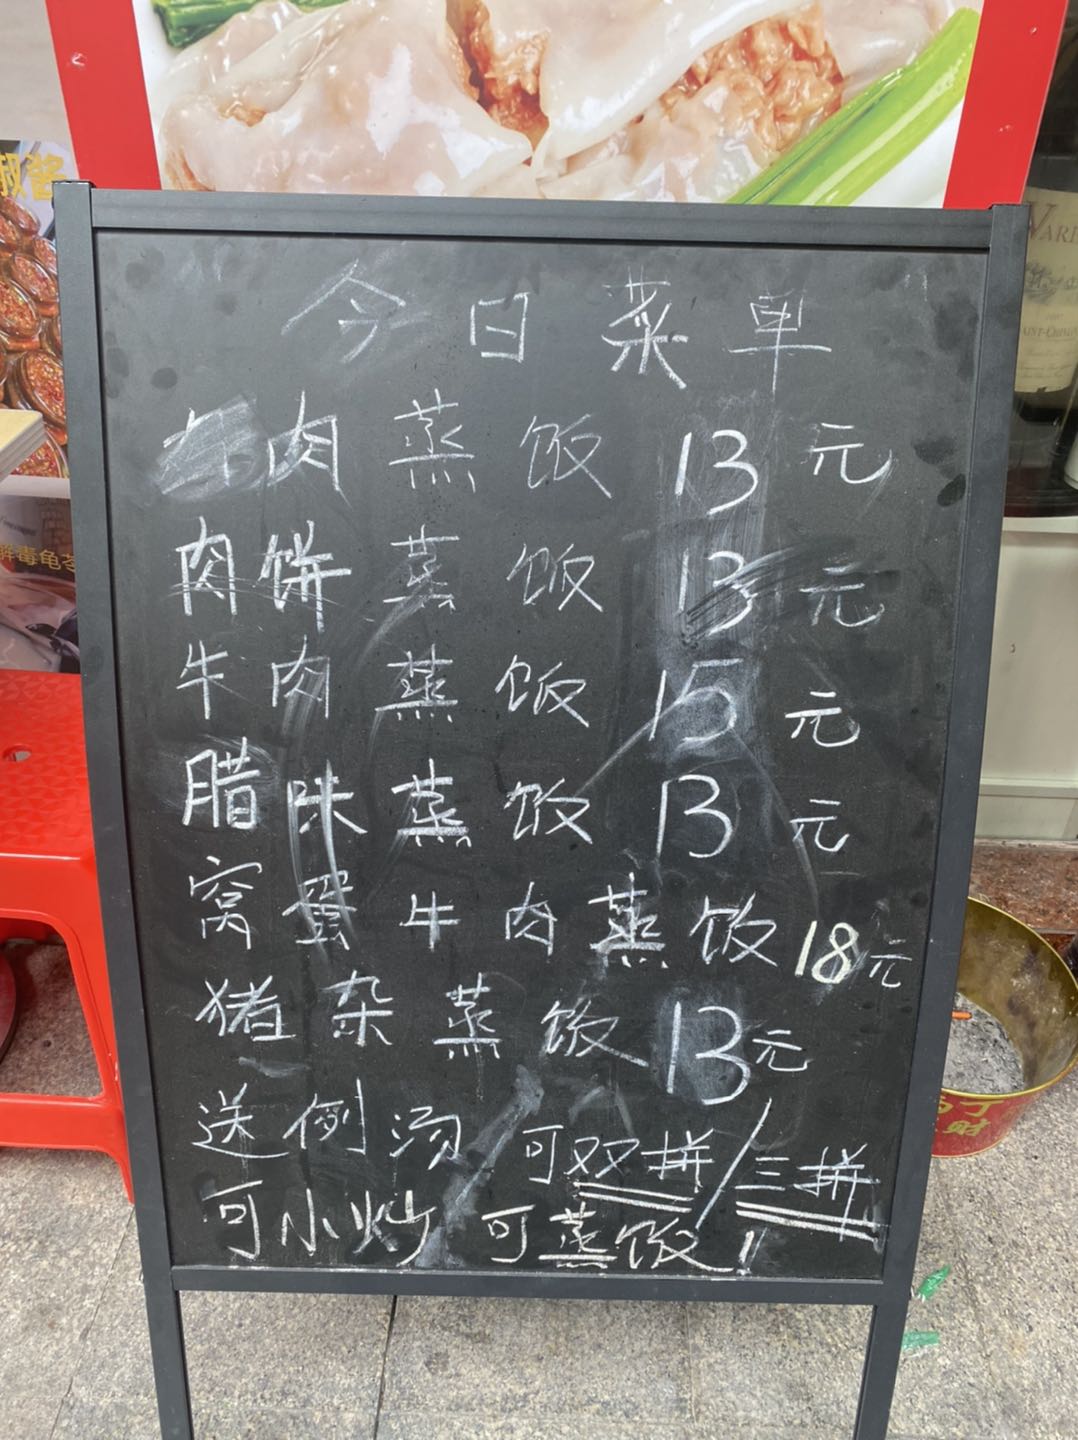 椒酱
解毒龟苓
今日菜单
肉蒸饭 13元
肉饼蒸饭 13元
牛肉蒸饭 15元
腊味蒸饭 13元
窝蛋牛肉蒸饭 18元
猪杂蒸饭 13元
送例汤 可双拼/三拼
可小炒 可蒸饭!